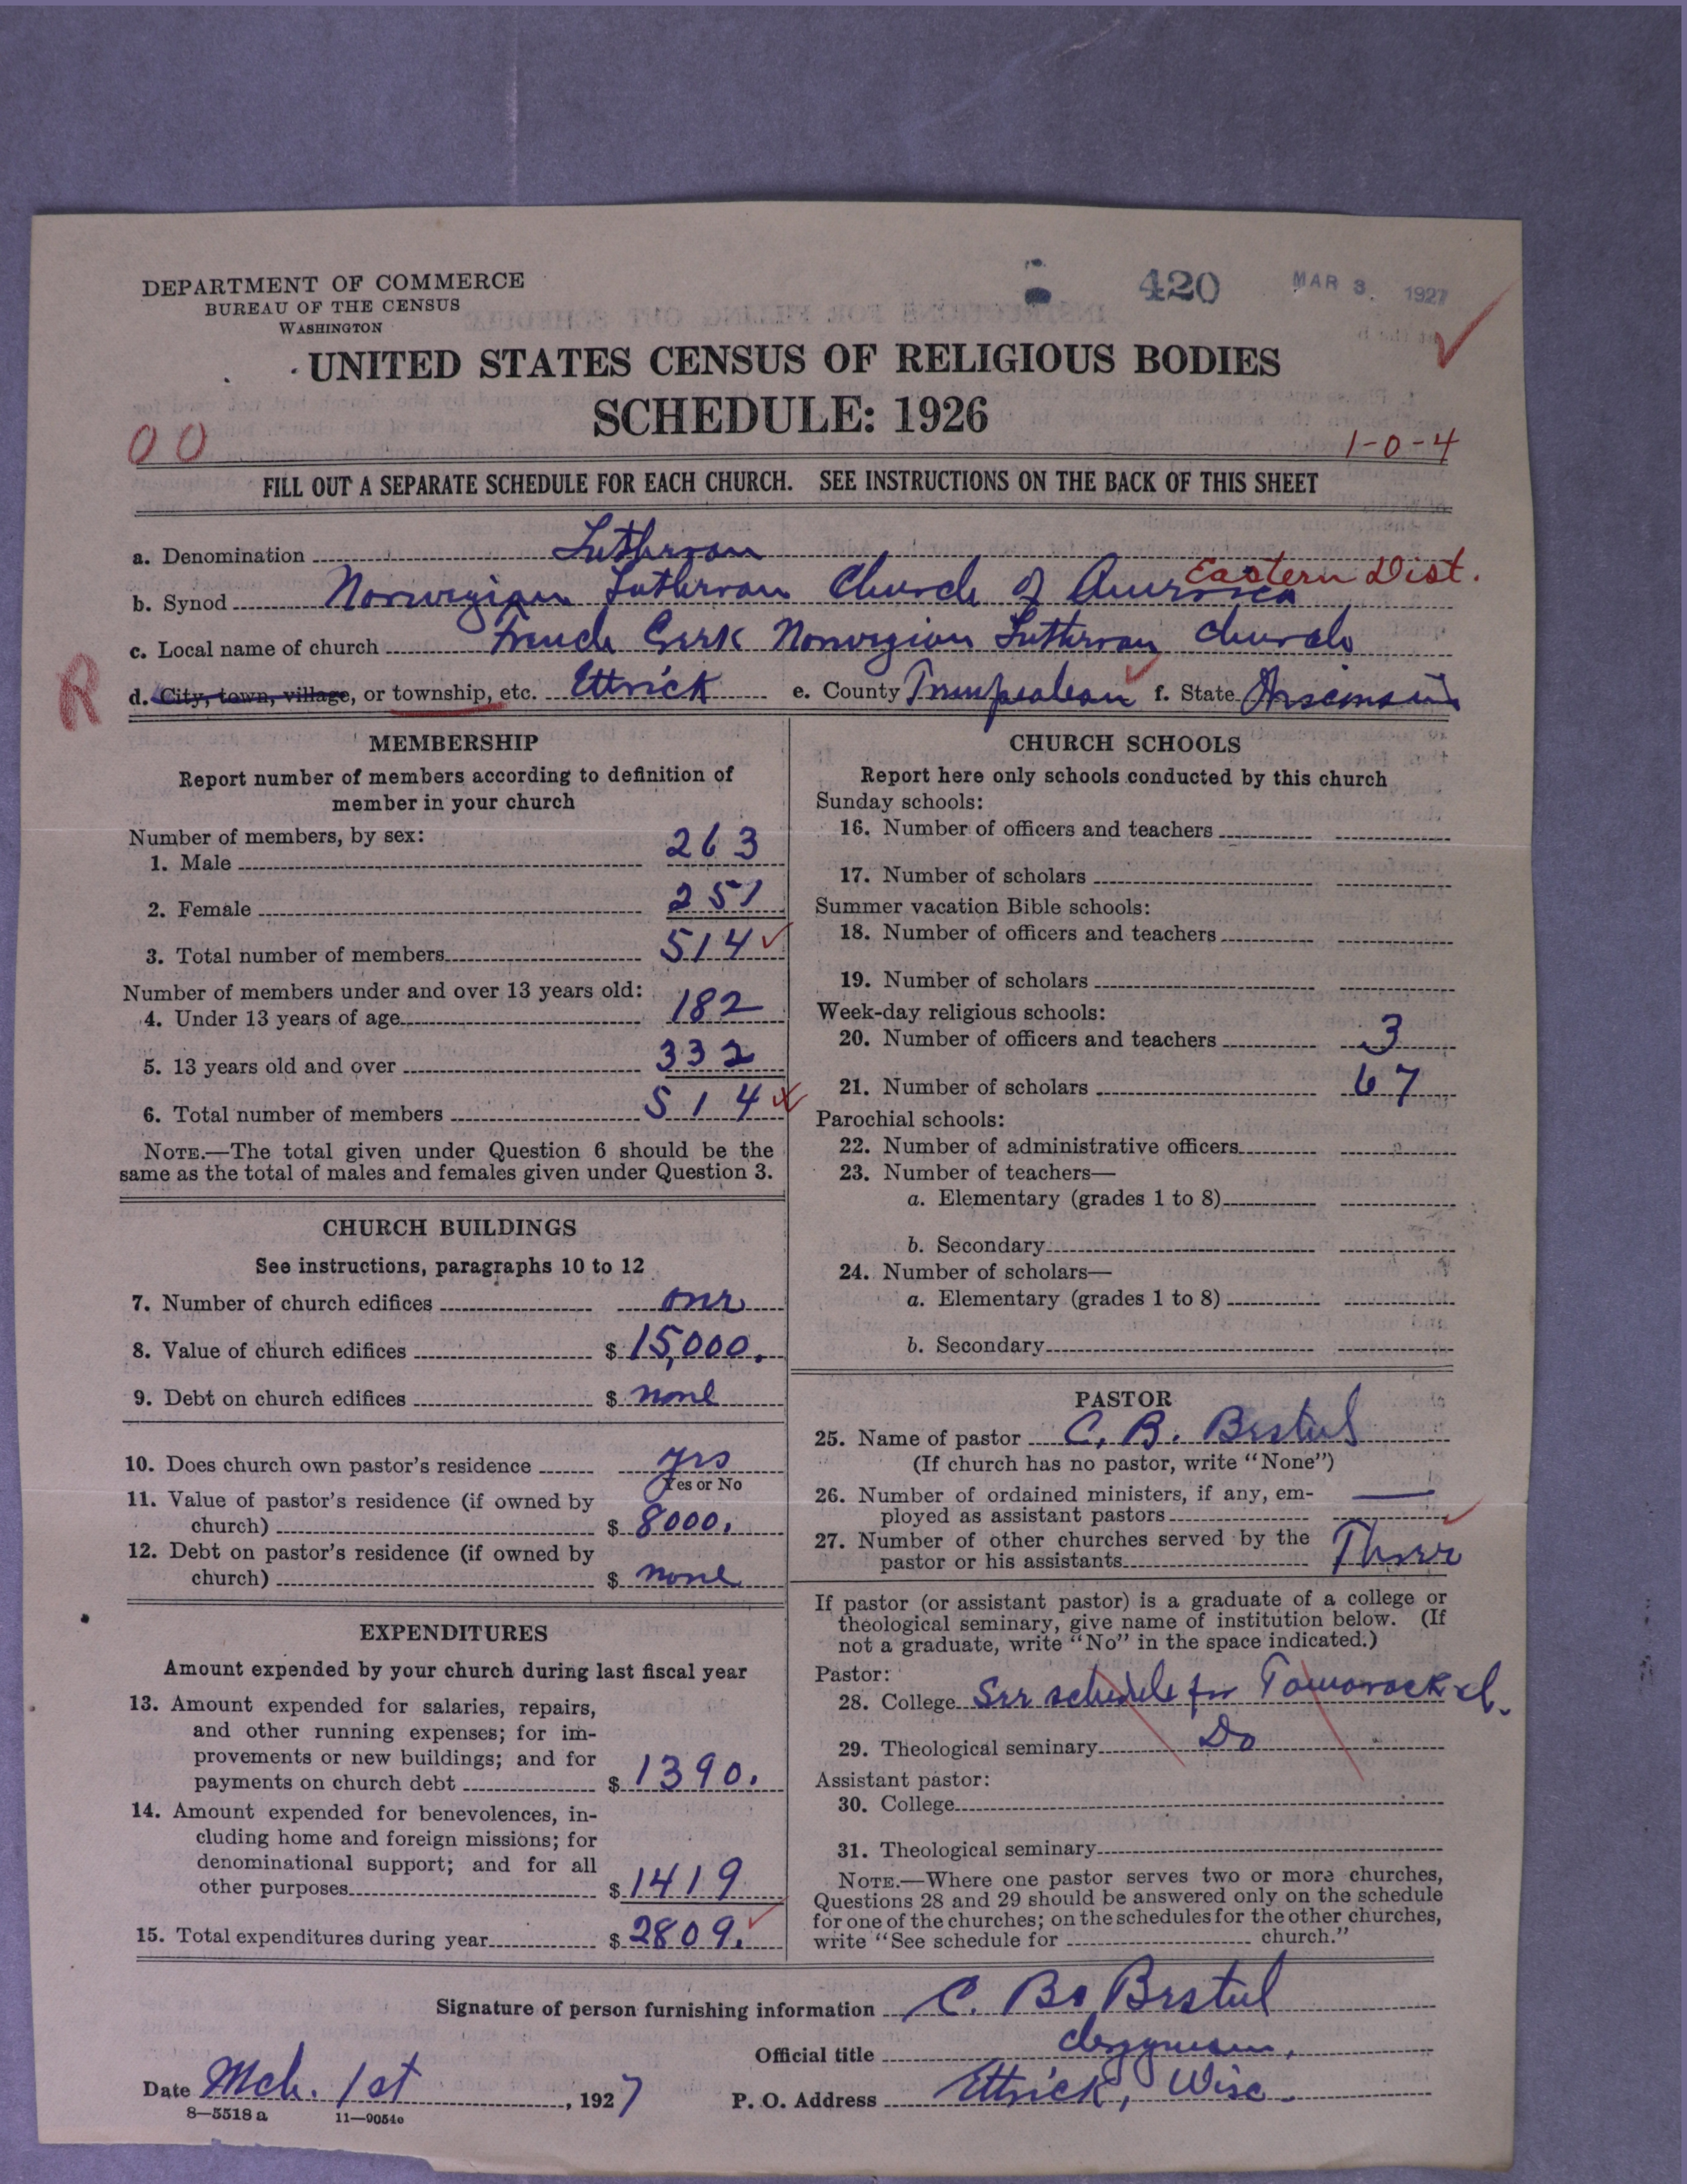 DEPARTMENT OF COMMERCE
BUREAU OF THE CENSUS
WASHINGTON
420
MAR 3. 1927
UNITED STATES CENSUS OF RELIGIOUS BODIES
SCHEDULE: 1926
00
1-0-4
FILL OUT A SEPARATE SCHEDULE FOR EACH CHURCH. SEE INSTRUCTIONS ON THE BACK OF THIS SHEET
a. Denomination Lutheran
Eastern Dist.
b. Synod Norwegian Lutheran Church of America
c. Local name of church French Creek Norwegian Lutheran Church
R
d. City, town, village, or township, etc. Ettrick e. County Trempealeau f. State Wisconsin
MEMBERSHIP
Report number of members according to definition of
member in your church
Number of members, by sex:
1. Male 263
2. Female 251
3. Total number of members 514
Number of members under and over 13 years old:
4. Under 13 years of age 182
5. 13 years old and over 332
6. Total number of members 514
NOTE.—The total given under Question 6 should be the
same as the total of males and females given under Question 3.
CHURCH BUILDINGS
See instructions, paragraphs 10 to 12
7. Number of church edifices one
8. Value of church edifices $ 15,000.
9. Debt on church edifices $ none
10. Does church own pastor's residence yes
Yes or No
11. Value of pastor's residence (if owned by
church) $ 8000.
12. Debt on pastor's residence (if owned by
church) $ none
EXPENDITURES
Amount expended by your church during last fiscal year
13. Amount expended for salaries, repairs,
and other running expenses; for im-
provements or new buildings; and for
payments on church debt $ 1390.
14. Amount expended for benevolences, in-
cluding home and foreign missions; for
denominational support; and for all
other purposes $ 1419
15. Total expenditures during year $ 2809.
CHURCH SCHOOLS
Report here only schools conducted by this church
Sunday schools:
16. Number of officers and teachers
17. Number of scholars
Summer vacation Bible schools:
18. Number of officers and teachers
19. Number of scholars
Week-day religious schools:
20. Number of officers and teachers 3
21. Number of scholars 67
Parochial schools:
22. Number of administrative officers
23. Number of teachers—
a. Elementary (grades 1 to 8)
b. Secondary
24. Number of scholars—
a. Elementary (grades 1 to 8)
b. Secondary
PASTOR
25. Name of pastor C. B. Bestul
(If church has no pastor, write "None")
26. Number of ordained ministers, if any, em-
ployed as assistant pastors —
27. Number of other churches served by the
pastor or his assistants Three
If pastor (or assistant pastor) is a graduate of a college or
theological seminary, give name of institution below. (If
not a graduate, write "No" in the space indicated.)
Pastor:
28. College See schedule for Tamarack ch.
29. Theological seminary Do
Assistant pastor:
30. College
31. Theological seminary
NOTE.—Where one pastor serves two or more churches,
Questions 28 and 29 should be answered only on the schedule
for one of the churches; on the schedules for the other churches,
write "See schedule for church."
Signature of person furnishing information C. B. Bestul
Official title clergyman.
Date Mch. 1st, 1927 P. O. Address Ettrick, Wisc.
8—5518 a 11—9054o